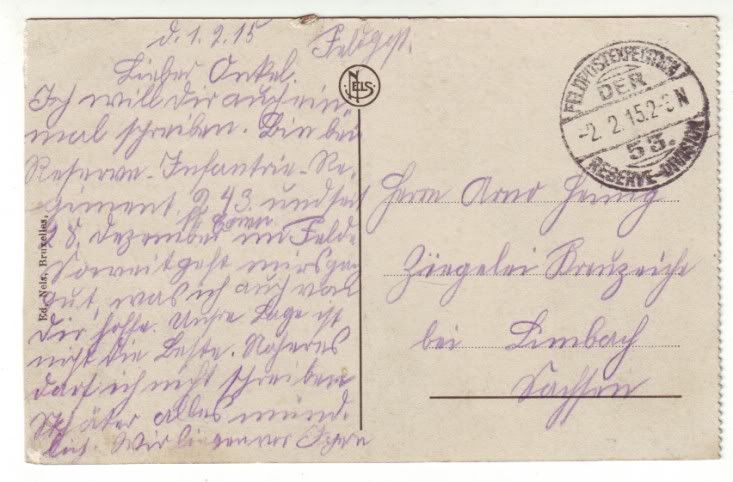 d. 1.2.15
Feldpost.
Lieber Onkel.
Ich will dir auch ein
mal schreiben. Bin bei
Reserve-Infantrie-Re-
giment 243. und seit
8. Dezember im Felde
Soweit geht mirs ga
gut, was ich auch von
dir hoffe. Unsre Lage ist
nicht die beste. Näheres
darf ich nicht schreiben
Später alles münd-
lich. Wir liegen vor Ypern
NELS
Ed. Nels, Bruxelles.
FELDPOSTEXPEDITION
DER
-2.2.15.2-3N
53.
RESERVE-DIVISION
Herrn Arno Hennig
Ziegelei Kreuzeiche
bei Limbach
Sachsen